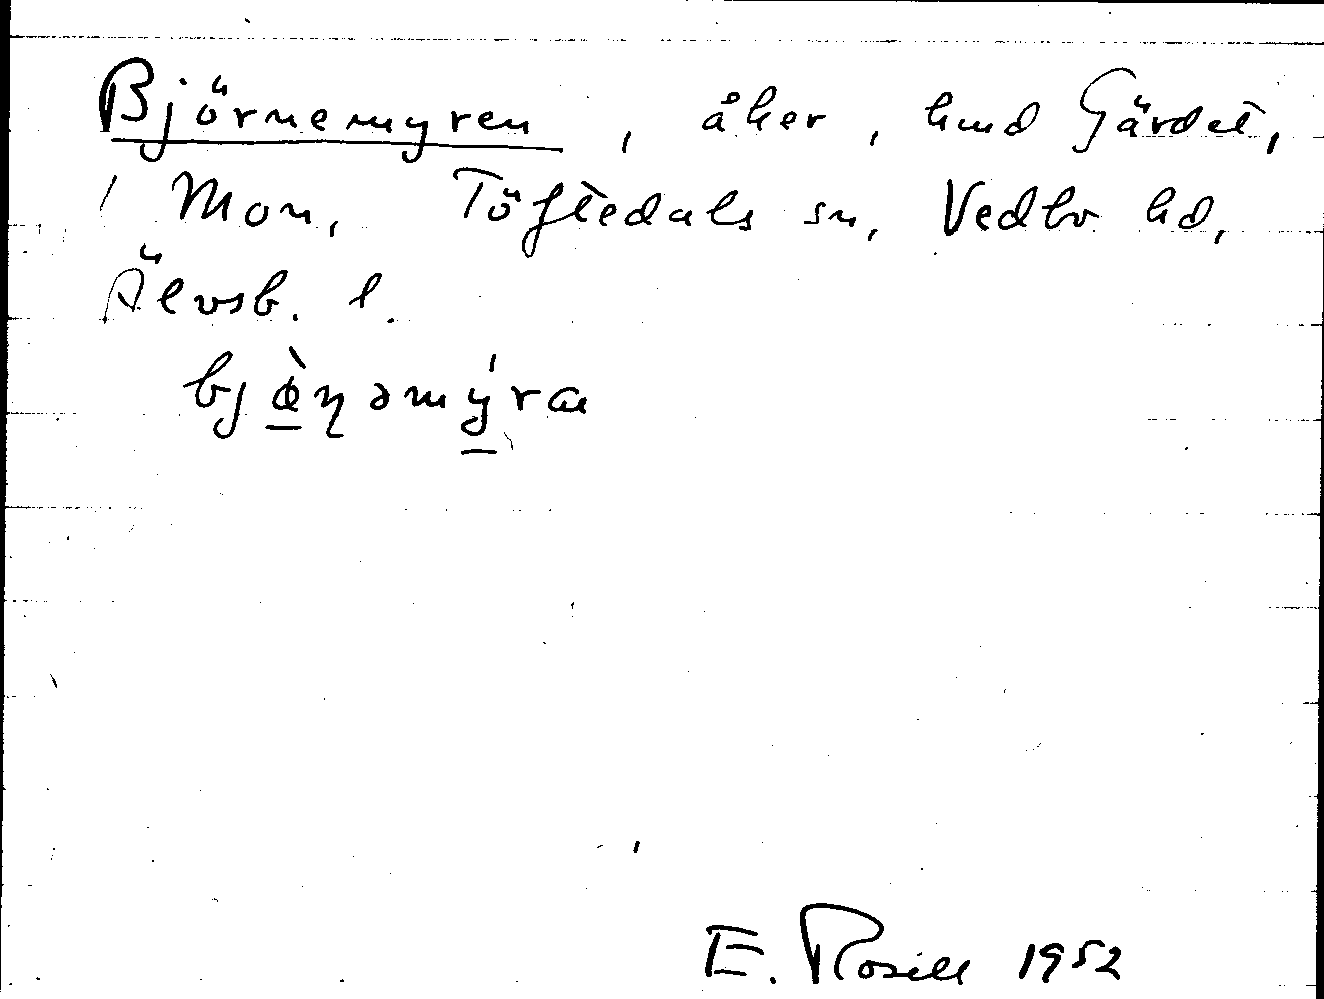 Björnemyren, åker, hmd Gärdet,
1 Mon, Töftedals sn, Vedbo hd,
Älvsb. l.
bjɵ̀ɳəmýra
E. Rosell 1952